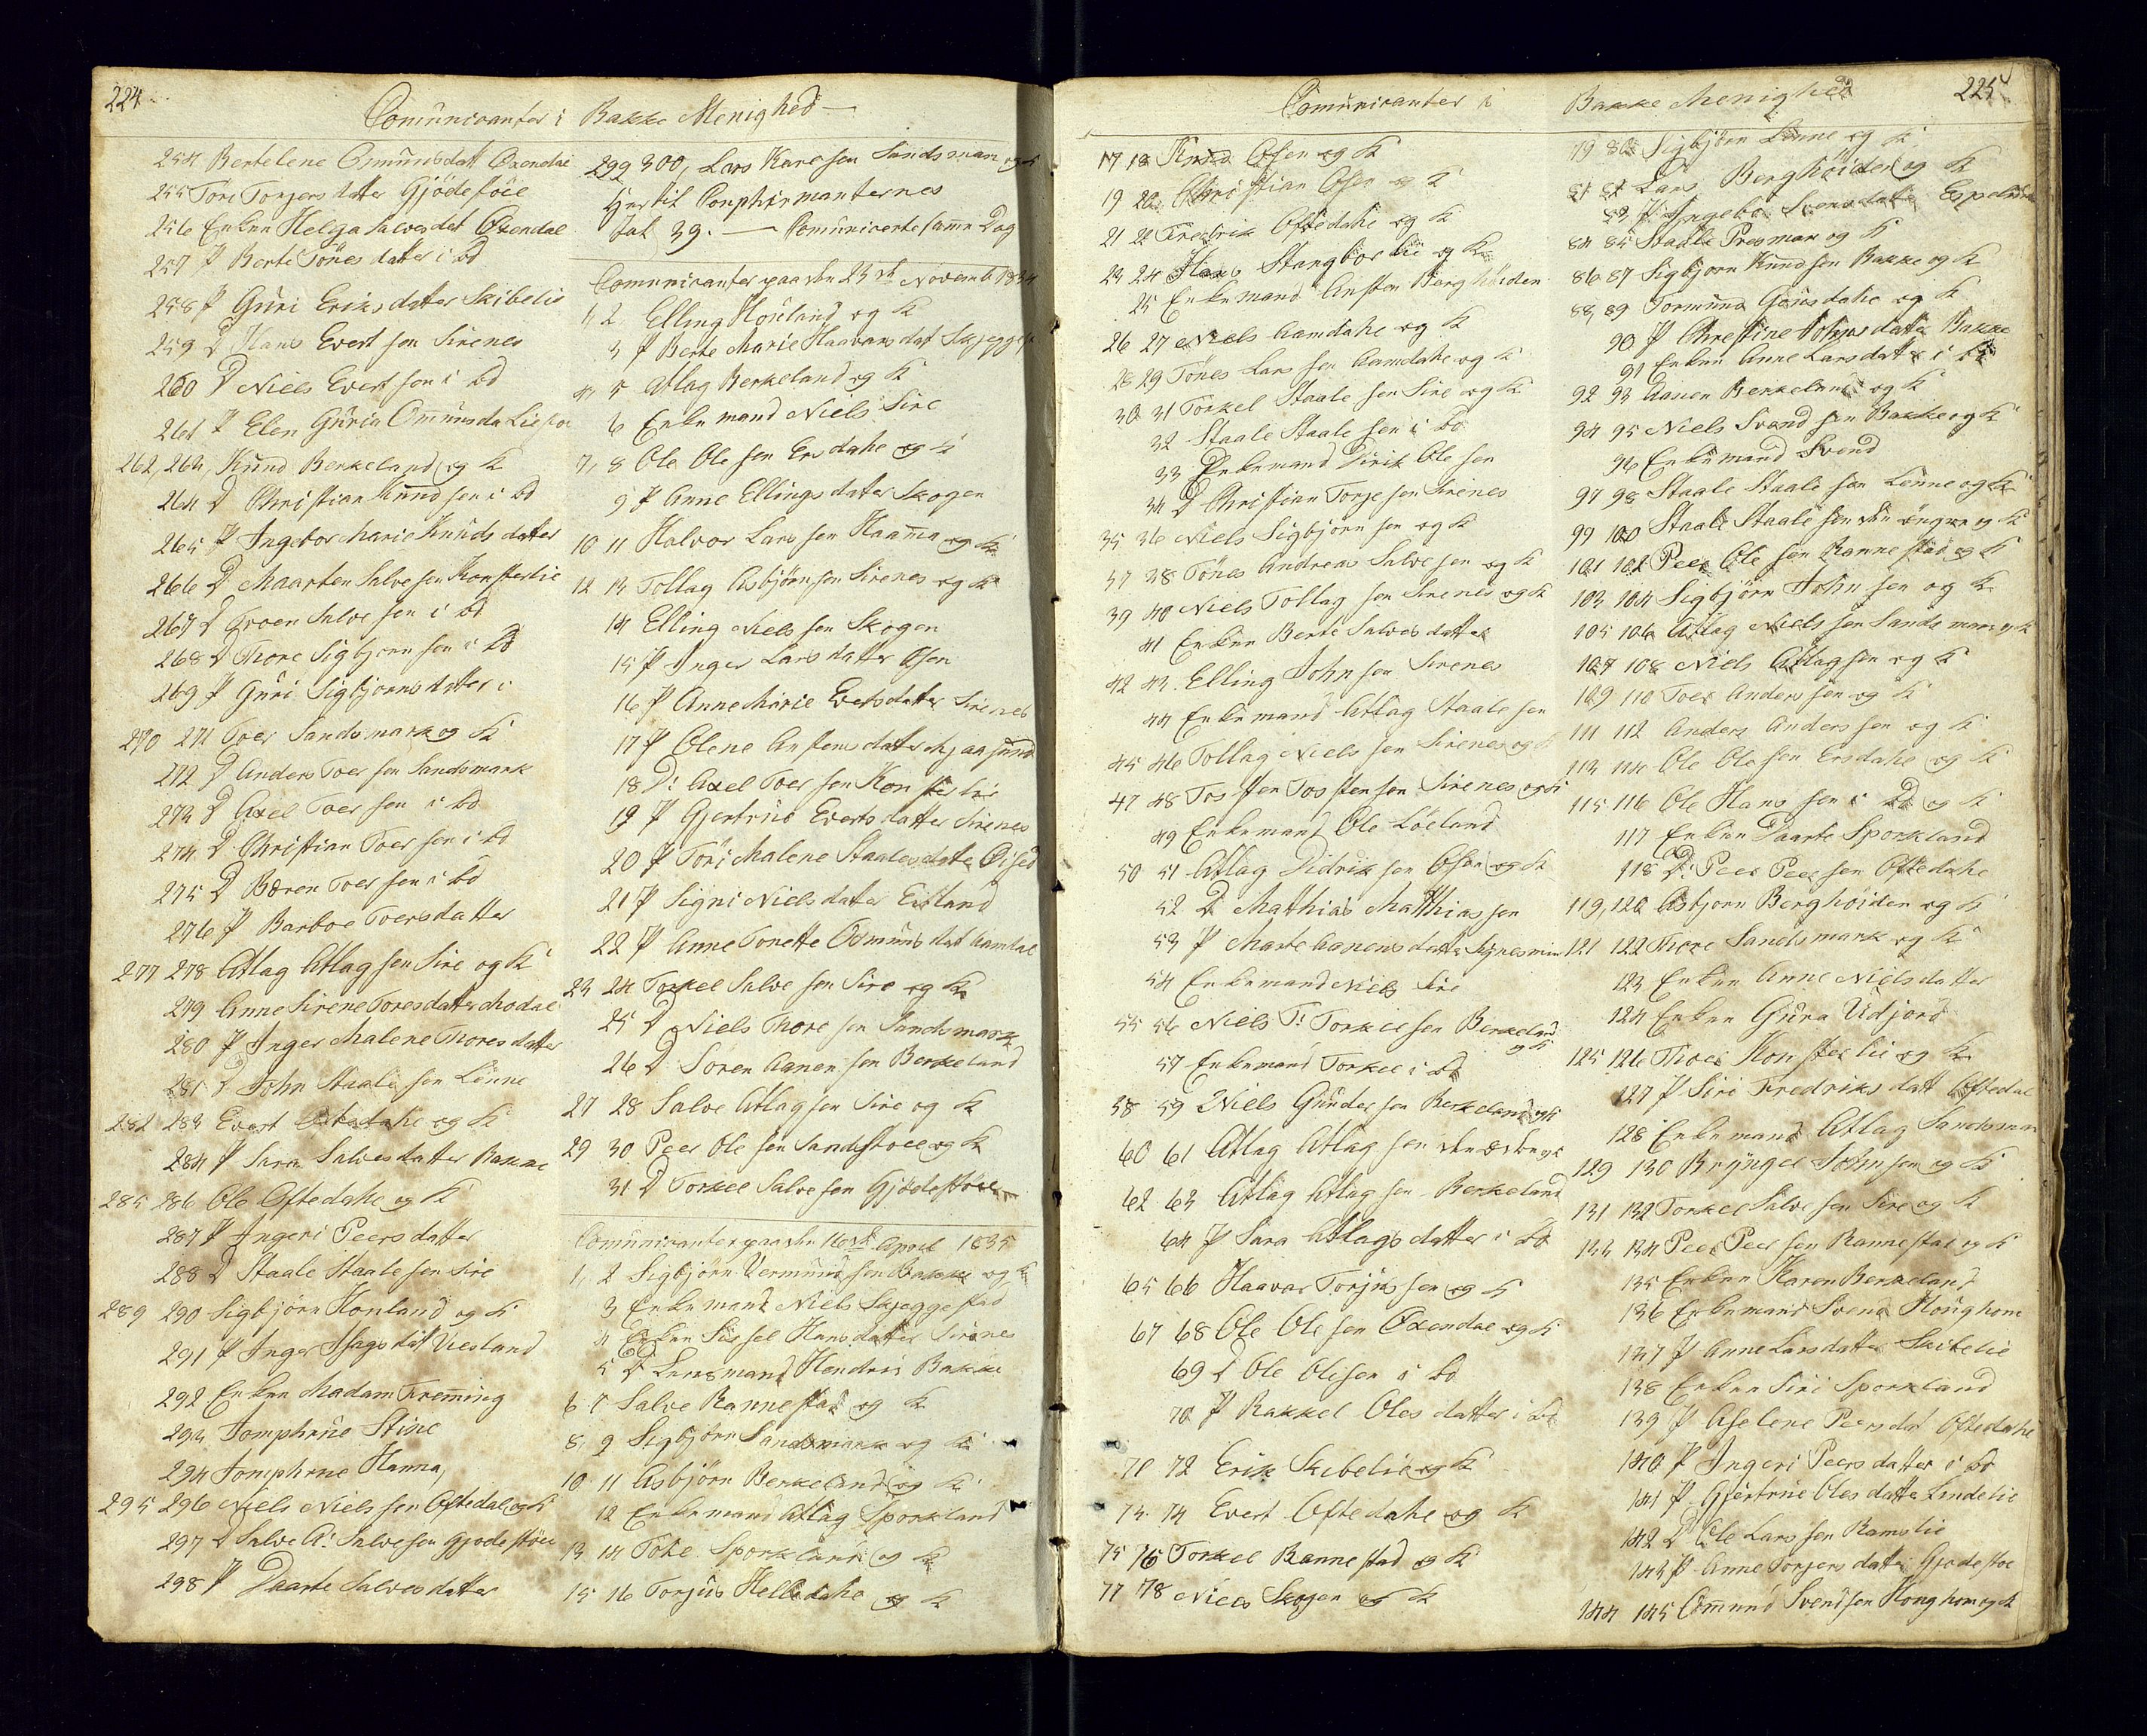 224
Comunicanter i Bakke Menighed
254 Bertelene Omunds datt Oxendal
255 Tore Torjersdatter Gjödestöle
256 Enken Helga Salvesdat Oxendal
257 P Berte Tönes datter i bd
258 P Guri Eriks datter Skibelie
259 D Hans Evert sen Sirenes
260 D Niels Evert sen i bd
261 P Elen Guria Omunsda
262, 263, Knud Berkeland og K
264 D Christian Knud sen i bd
265 P Ingebor Marie Knuds datter
266 D Maarten Salve sen Konsterlie
267 D Salve sen i bd
268 D Thore Sigbjorn sen i bd
269 P Guri Sigbjorns datter i
270 271 Toer Sandsmark og K
272 D Anders Toer sen Sandsmark
273 D Axel Toer sen i bd
274 D Christian Toer sen i bd
275 D Bæren Toer sen i bd
276 P Barboe Toersdatter
277 278 Atlag Atlag sen Sire og K
279 Anne Sirene Toresdatter Modal
280 P Inger Malene Thores datter
281 D John Staale sen Lönne
282 283 Evert og K
284 P Sara Salvesdatter Bakke
285 286 Ole Oftedahe og K
287 P Ingeri Peersdatter
288 D Staale Staale sen Sire
289 290 Sigbjörn Honland og K
291 P Inger Isags dat Viesland
292 Enken Madam Fremming
293 Jomphrue Stine
294 Jomphrue Hanna,
295 296 Niels Niels sen Oftedal og K
297 D Salve A: Salvesen Gjödestöle
298 P Daarte Salvesdatter
299 300, Lars Kare sen Sandsman og K
Hertil Conphirmanternes
Tal 39. — Comunicerte samme Dag
Comunicanter paa den 23de Novemb 1834
1, 2 Elling Honland og K
3 P Berte Marie Haavars dat
4, 5 Atlag Berkeland og K
6 Enkemand Niels Sire
7, 8 Ole Ole sen Ersdahe og K
9 P Anne Ellings dater Skogen
10 11 Halvor Lars sen Haamma og K
12 13 Tollag Asbjörnsen Sirenes og K
14 Elling Niels sen Skogen
15 P Inger Lars datter Osen
16 P Anne Marie Evertsdatter Sirenes
17 P Olene Anstens dater
18 D: Axel Toer sen Konsterlie
19 P Gjertrud Everts datter Sirenes
20 P Tori Malene Staalesdatter
21 P Signi Niels dater Eitland
22 P Anne Tonette Osmuns dat Aamdal
23 24 Torkel Salve sen Sire og K
25 D Niels Thore sen Sandsmark
26 D Soren Aanen sen Berkeland
27 28 Salve Atlag sen Sire og K
29 30 Peer Ole sen Sandstoel og K
31 D Torkel Salve sen Gjödestöle
Comunicanter paa den 16de April 1835
1, 2 Sigbjörn Vermund sen Bakke og K
3 Enkemand Niels Skjeggestad
4 Enken Sissel Hansdatter Sirenes
5 D Lensmand Hendrik Bakke
6 7 Salve Rannestad og K
8, 9 Sigbjörn Sandsmark og K
10 11 Asbjörn Berkeland og K
12 Enkemand Atlag Sporkland
13 14 Tohe Sporkland og K
15 16 Torjus Helledahe og K
225
Comunicanter i Bakke Menighed
17 18 Knud Osen og K
19 20 Christian Osen og K
21 22 Fredrik Oftedahe og K
23 24 Hans Stangborlie og K
25 Enkemand Ansten Berghöiden
26 27 Niels Aamdahe og K
28 29 Tönes Lars sen Aamdahe og K
30 31 Torkel Staale sen Sire og K
32 Staale Staale sen i bd
33 Enkemand Dirik Ole sen
34 D Christian Torje sen Sirenes
35 36 Niels Sigbjörn sen og K
37 38 Tönes Andreas Salve sen og K
39 40 Niels Tollag sen Sirenes og K
41 Enken Berte Salves datter
42 43. Elling John sen Sirenes
44 Enkemand Atlag Staale sen
45 46 Tollag Niels sen Sirenes og K
47 48 Tosten Tosten sen Sirenes og K
49 Enkemand Ole Löeland
50 51 Atlag Didrik sen Osen og K
52 D Mathias Matthias sen
53 P Marte Aanensdatter
54 Enkemand Niels Sire
55 56 Niels T: Torkilsen Berkeland og K
57 Enkemand Torkel i bd
58 59 Niels Gunder sen Berkeland og K
60 61 Atlag Atlag sen den ældre og K
62 63 Atlag Atlag sen Berkeland
64 P Sara Atlags datter i bd
65 66 Haavar Torjus sen og K
67 68 Ole Ole sen Oxendal og K
69 D Ole Olisen i bd
70 P Rakkel Oles datter i bd
71 72 Erik Skibelie og K
73. 74 Evert Oftedahe og K
75 76 Torkel Rannestad og K
77 78 Niels Skogen og K
79 80 Sigbjörn Lönne og K
81 82 Lars Berghöiden og K
83 P Ingebor Svensdatter
84 85 Staale Presman og K
86 87 Sigbjorn Knudsen Bakke og K
88, 89 Tormund Gausdahe og K
90 P Christine Johnsdatter Bakke
91 Enken Anne Larsdatter i bd
92 93 Aanen Berkeland og K
94 95 Niels Svend sen Bakke og K
96 Enkemand Svend
97 98 Staale Staale sen Lönne og K
99 100 Staale Staale sen den öngere og K
101 102 Peer Ole sen Rannestad og K
103 104 Sigbjörn John sen og K
105 106 Atlag Niels sen Sandsman og K
107 108 Niels Atlagsen og K
109 110 Toer Anders sen og K
111 112 Anders Anders sen og K
113 114 Ole Ole sen Ersdahe og K
115 116 Ole Hans sen i bd og K
117 Enken Daarte Sporkland
118 D: Peer Peer sen Oftedahe
119, 120 Asbjorn Berghöiden og K
121 122 Thore Sandsmark og K
123 Enken Anne Nielsdatter
124 Enken Guna Udjord
125 126 Thoer Konsterlie og K
127 P Siri Fredriks datt Oftedal
128 Enkemand Atlag Sandsman
129 130 Bryngel Johnsen og K
131 132 Torkel Salve sen Sire og K
133 134 Peer Peer sen Rannestad og K
135 Enken Karen Berkeland
136 Enkemand Svend Houghom
137 P Anne Larsdatter Skibelie
138 Enken Siri Sporkland
139 P Aselene Peersdat Oftedahe
140 P Ingeri Peers datter i bd
141 P Gjertrue Oles datter Lindelie
142 D Ole Lars sen Ramslie
143 P Anne Torjers datter Gjödestöl
144 145 Ommund Svendsen Houghom og K